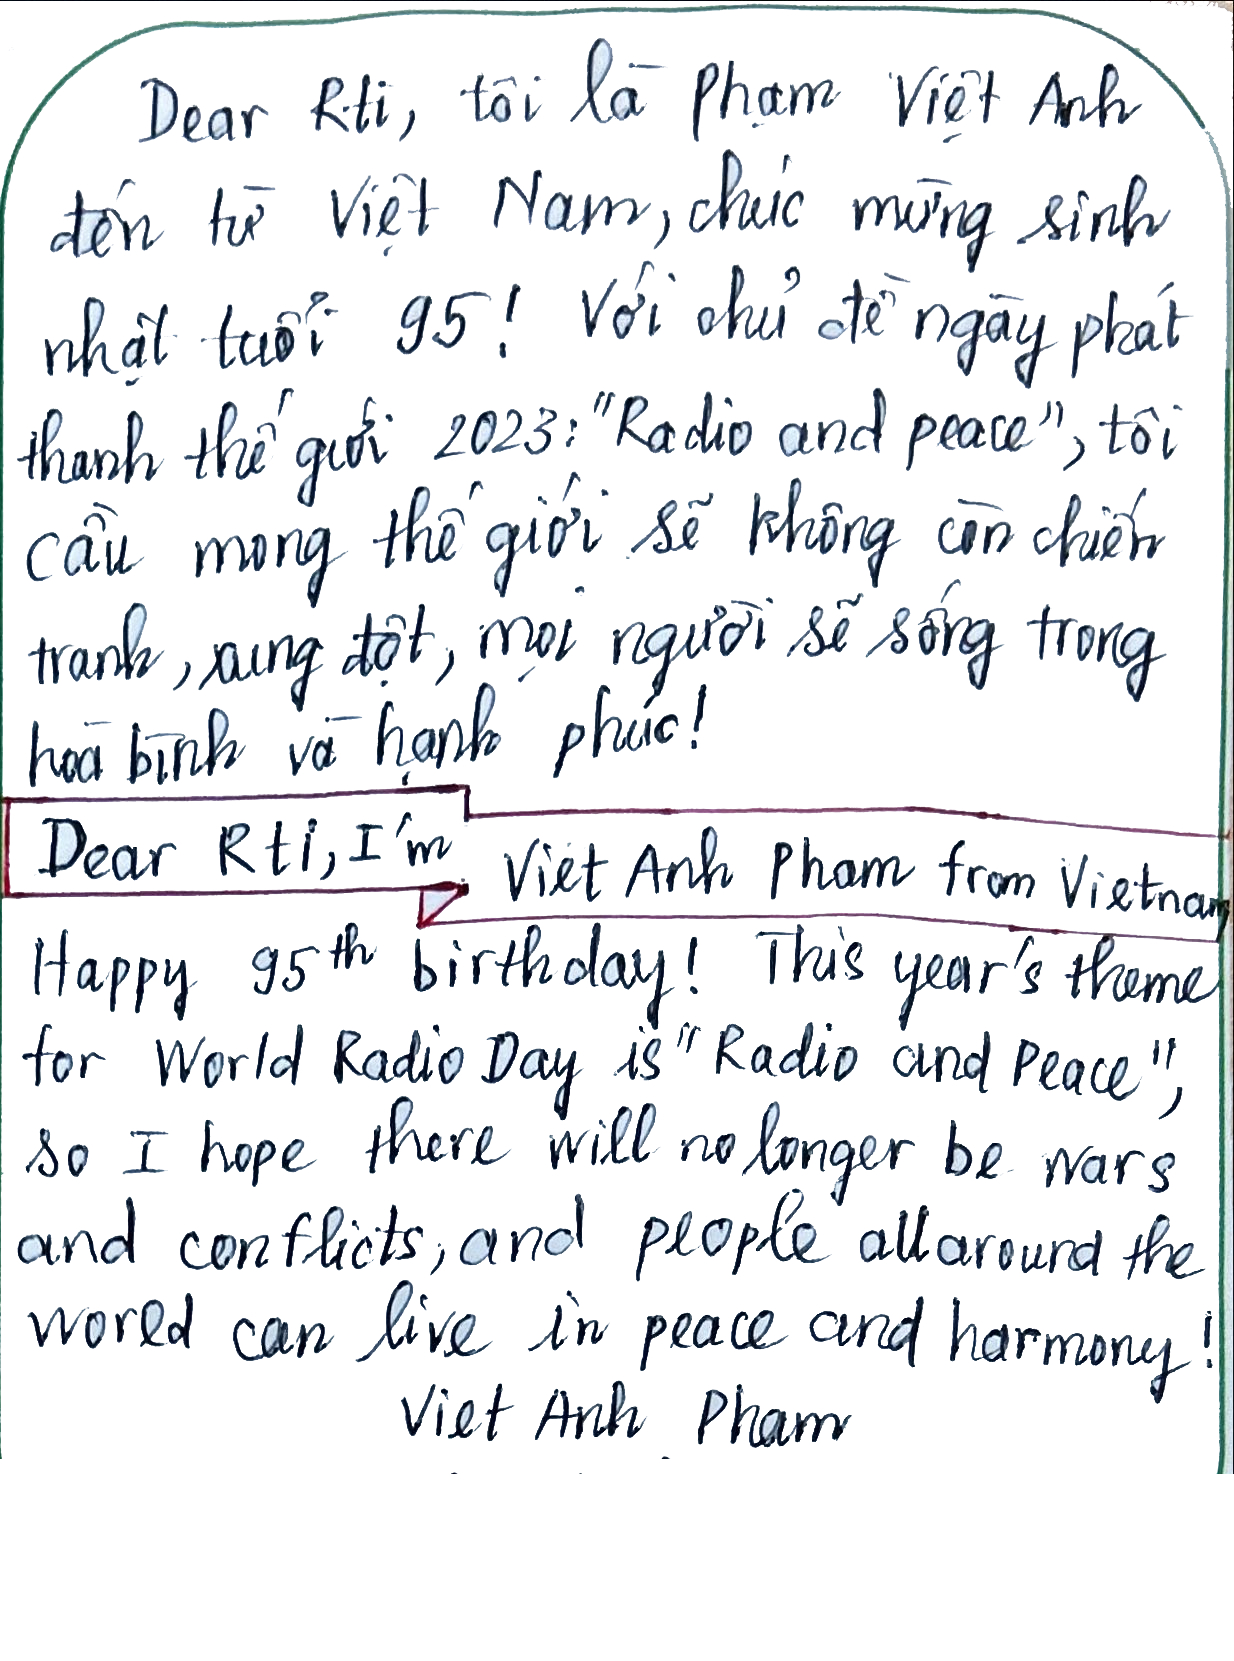 Dear Rti, tôi là Phạm Việt Anh
đến từ Việt Nam, chúc mừng sinh
nhật tuổi 95! Với chủ đề ngày phát
thanh thế giới 2023: "Radio and peace", tôi
cầu mong thế giới sẽ không còn chiến
tranh, xung đột, mọi người sẽ sống trong
hoà bình và hạnh phúc!
Dear Rti, I'm Viet Anh Pham from Vietnam
Happy 95th birthday! This year's theme
for World Radio Day is "Radio and Peace",
so I hope there will no longer be wars
and conflicts, and people all around the
world can live in peace and harmony!
Viet Anh Pham